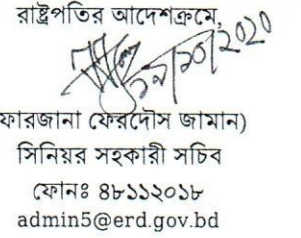 রাষ্ট্রপতির আদেশক্রমে,
ফারজানা ফেরদৌস জামান)
সিনিয়র সহকারী সচিব
ফোনঃ ৪৮১১২০১৮
admin5@erd.gov.bd